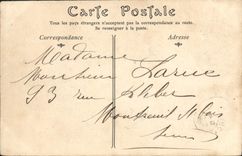 Carte Postale
Tous les pays étrangers n'acceptent pas la correspondance au recto.
Se renseigner à la poste.
Correspondance Adresse
Madame
Monsieur Larue
93 rue Kléber
Montreuil s/ Bois
Seine